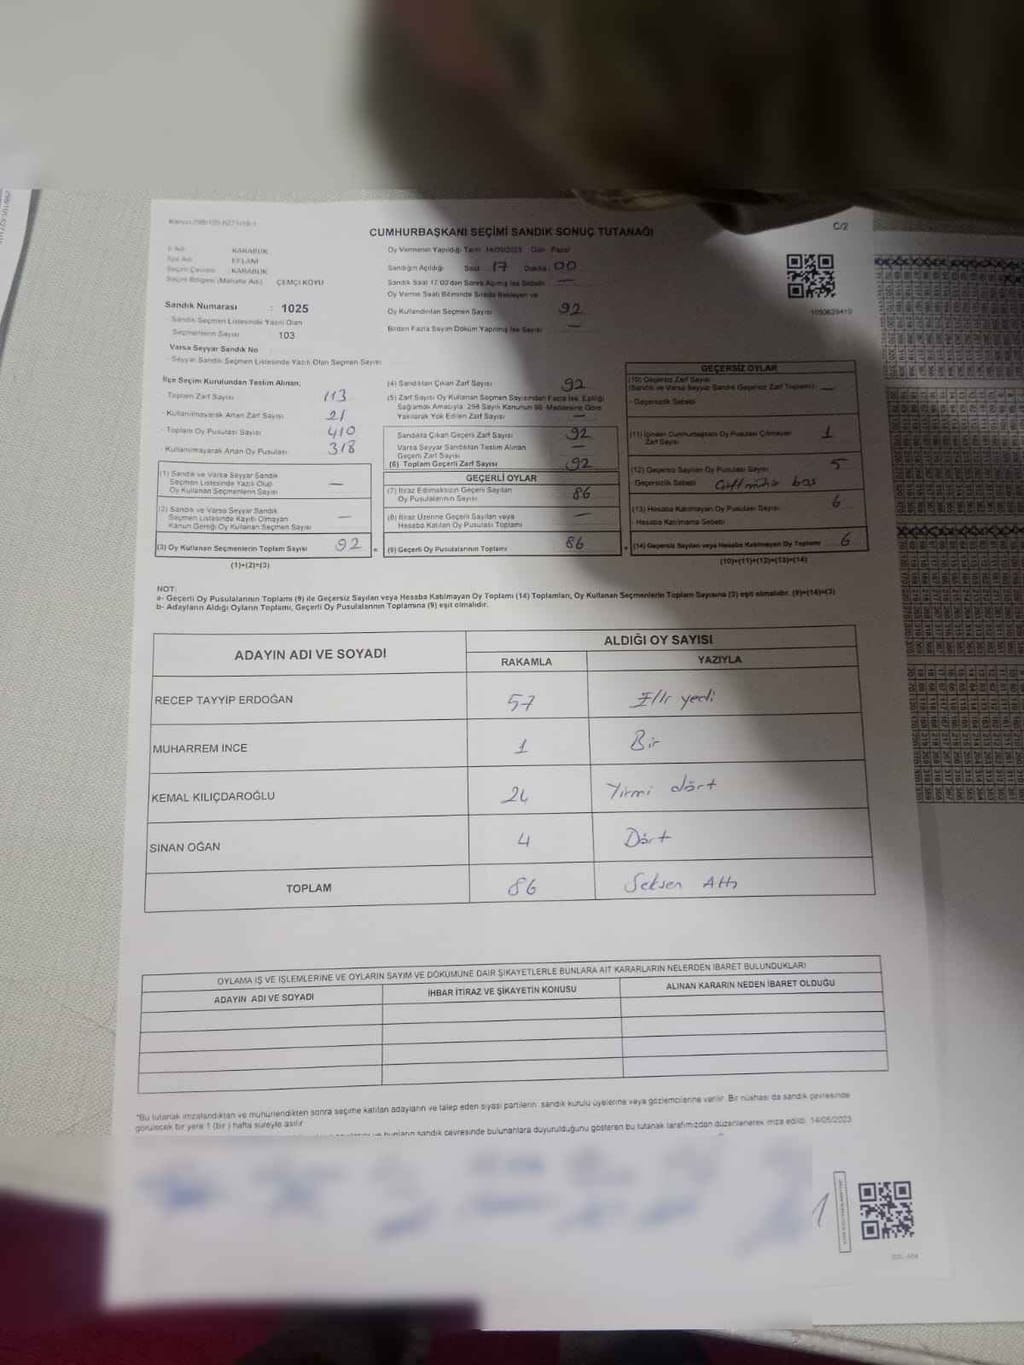 C/2
CUMHURBAŞKANI SEÇİMİ SANDIK SONUÇ TUTANAĞI
İl Adı : KARABÜK
İlçe Adı : EFLANİ
Seçim Çevresi : KARABÜK
Seçim Bölgesi (Mahalle Adı) : ÇEMÇİ KÖYÜ
Sandık Numarası : 1025
Sandık Seçmen Listesinde Yazılı Olan
Seçmenlerin Sayısı 103
Varsa Seyyar Sandık No
Seyyar Sandık Seçmen Listesinde Yazılı Olan Seçmen Sayısı
Oy Vermenin Yapıldığı Tarih 14/05/2023 Gün Pazar
Sandığın Açıldığı Saat 17 Dakika 00
Sandık Saat 17:00'den Sonra Açılmış İse Sebebi —
Oy Verme Saati Bitiminde Sırada Bekleyen ve
Oy Kullandırılan Seçmen Sayısı 92
Birden Fazla Sayım Döküm Yapılmış İse Sayısı —
1090629410
İlçe Seçim Kurulundan Teslim Alınan;
Toplam Zarf Sayısı 113
- Kullanılmayarak Artan Zarf Sayısı 21
- Toplam Oy Pusulası Sayısı 410
- Kullanılmayarak Artan Oy Pusulası 318
(1) Sandık ve Varsa Seyyar Sandık
Seçmen Listesinde Yazılı Olup
Oy Kullanan Seçmenlerin Sayısı —
(2) Sandık ve Varsa Seyyar Sandık
Seçmen Listesinde Kayıtlı Olmayan
Kanun Gereği Oy Kullanan Seçmen Sayısı —
(3) Oy Kullanan Seçmenlerin Toplam Sayısı 92 =
(1)+(2)=(3)
(4) Sandıktan Çıkan Zarf Sayısı 92
(5) Zarf Sayısı Oy Kullanan Seçmen Sayısından Fazla İse, Eşitliği
Sağlamak Amacıyla, 298 Sayılı Kanunun 98. Maddesine Göre
Yakılarak Yok Edilen Zarf Sayısı —
Sandıkta Çıkan Geçerli Zarf Sayısı 92
Varsa Seyyar Sandıktan Teslim Alınan
Geçerli Zarf Sayısı —
(6) Toplam Geçerli Zarf Sayısı 92
GEÇERLİ OYLAR
(7) İtiraz Edilmeksizin Geçerli Sayılan
Oy Pusulalarının Sayısı 86
(8) İtiraz Üzerine Geçerli Sayılan veya
Hesaba Katılan Oy Pusulası Toplamı —
(9) Geçerli Oy Pusulalarının Toplamı 86 +
GEÇERSİZ OYLAR
(10) Geçersiz Zarf Sayısı
(Sandık ve Varsa Seyyar Sandık Geçersiz Zarf Toplamı) —
- Geçersizlik Sebebi
(11) İçinden Cumhurbaşkanı Oy Pusulası Çıkmayan
Zarf Sayısı 1
(12) Geçersiz Sayılan Oy Pusulası Sayısı 5
- Geçersizlik Sebebi
(13) Hesaba Katılmayan Oy Pusulası Sayısı 6
- Hesaba Katılmama Sebebi
(14) Geçersiz Sayılan veya Hesaba Katılmayan Oy Toplamı 6
(10)+(11)+(12)+(13)=(14)
NOT:
a- Geçerli Oy Pusulalarının Toplamı (9) ile Geçersiz Sayılan veya Hesaba Katılmayan Oy Toplamı (14) Toplamları, Oy Kullanan Seçmenlerin Toplam Sayısına (3) eşit olmalıdır. (9)+(14)=(3)
b- Adayların Aldığı Oyların Toplamı, Geçerli Oy Pusulalarının Toplamına (9) eşit olmalıdır.
ADAYIN ADI VE SOYADI
ALDIĞI OY SAYISI
RAKAMLA YAZIYLA
RECEP TAYYİP ERDOĞAN 57 Elli yedi
MUHARREM İNCE 1 Bir
KEMAL KILIÇDAROĞLU 24 Yirmi dört
SİNAN OĞAN 4 Dört
TOPLAM 86 Seksen Altı
OYLAMA İŞ VE İŞLEMLERİNE VE OYLARIN SAYIM VE DÖKÜMÜNE DAİR ŞİKAYETLERLE BUNLARA AİT KARARLARIN NELERDEN İBARET BULUNDUKLARI
ADAYIN ADI VE SOYADI İHBAR İTİRAZ VE ŞİKAYETİN KONUSU ALINAN KARARIN NEDEN İBARET OLDUĞU
"Bu tutanak imzalandıktan ve mühürlendikten sonra seçime katılan adayların ve talep eden siyasi partilerin sandık kurulu üyelerine veya gözlemcilerine verilir. Bir nüshası da sandık çevresinde
görülecek bir yere 1 (bir) hafta süreyle asılır.
sandık çevresinde bulunanlara duyurulduğunu gösteren bu tutanak tarafımızdan düzenlenerek imza edildi. 14/05/2023
1